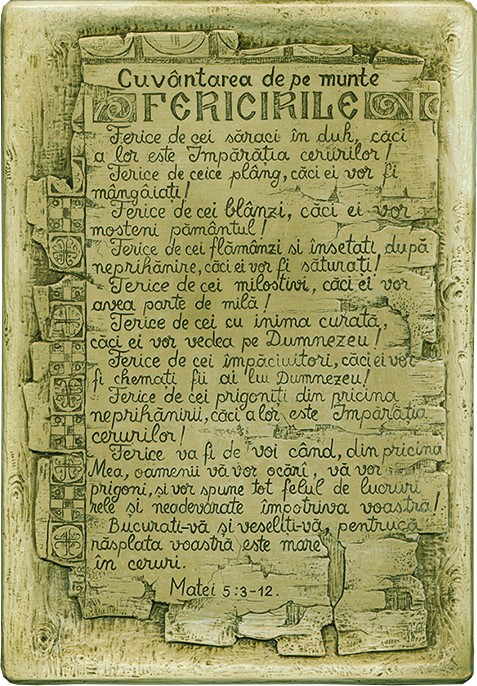 Cuvântarea de pe munte
FERICIRILE
Ferice de cei săraci în duh, căci
a lor este Împărăția cerurilor!
Ferice de ceice plâng, căci ei vor fi
mângâiați!
Ferice de cei blânzi, căci ei vor
mosteni pământul!
Ferice de cei flămânzi si însetati după
neprihănire, căci ei vor fi săturați!
Ferice de cei milostivi, căci ei vor
avea parte de milă!
Ferice de cei cu inima curată,
căci ei vor vedea pe Dumnezeu!
Ferice de cei împăciuitori, căci ei vor
fi chemați fii ai lui Dumnezeu!
Ferice de cei prigoniți din pricina
neprihănirii, căci a lor este Împărăția
cerurilor!
Ferice va fi de voi când, din pricina
Mea, oamenii vă vor ocări, vă vor
prigoni, si vor spune tot felul de lucruri
rele și neadevărate împotriva voastra!
Bucurati-vă și veseliti-vă, pentrucă
răsplata voastră este mare
în ceruri.
Matei 5:3-12.